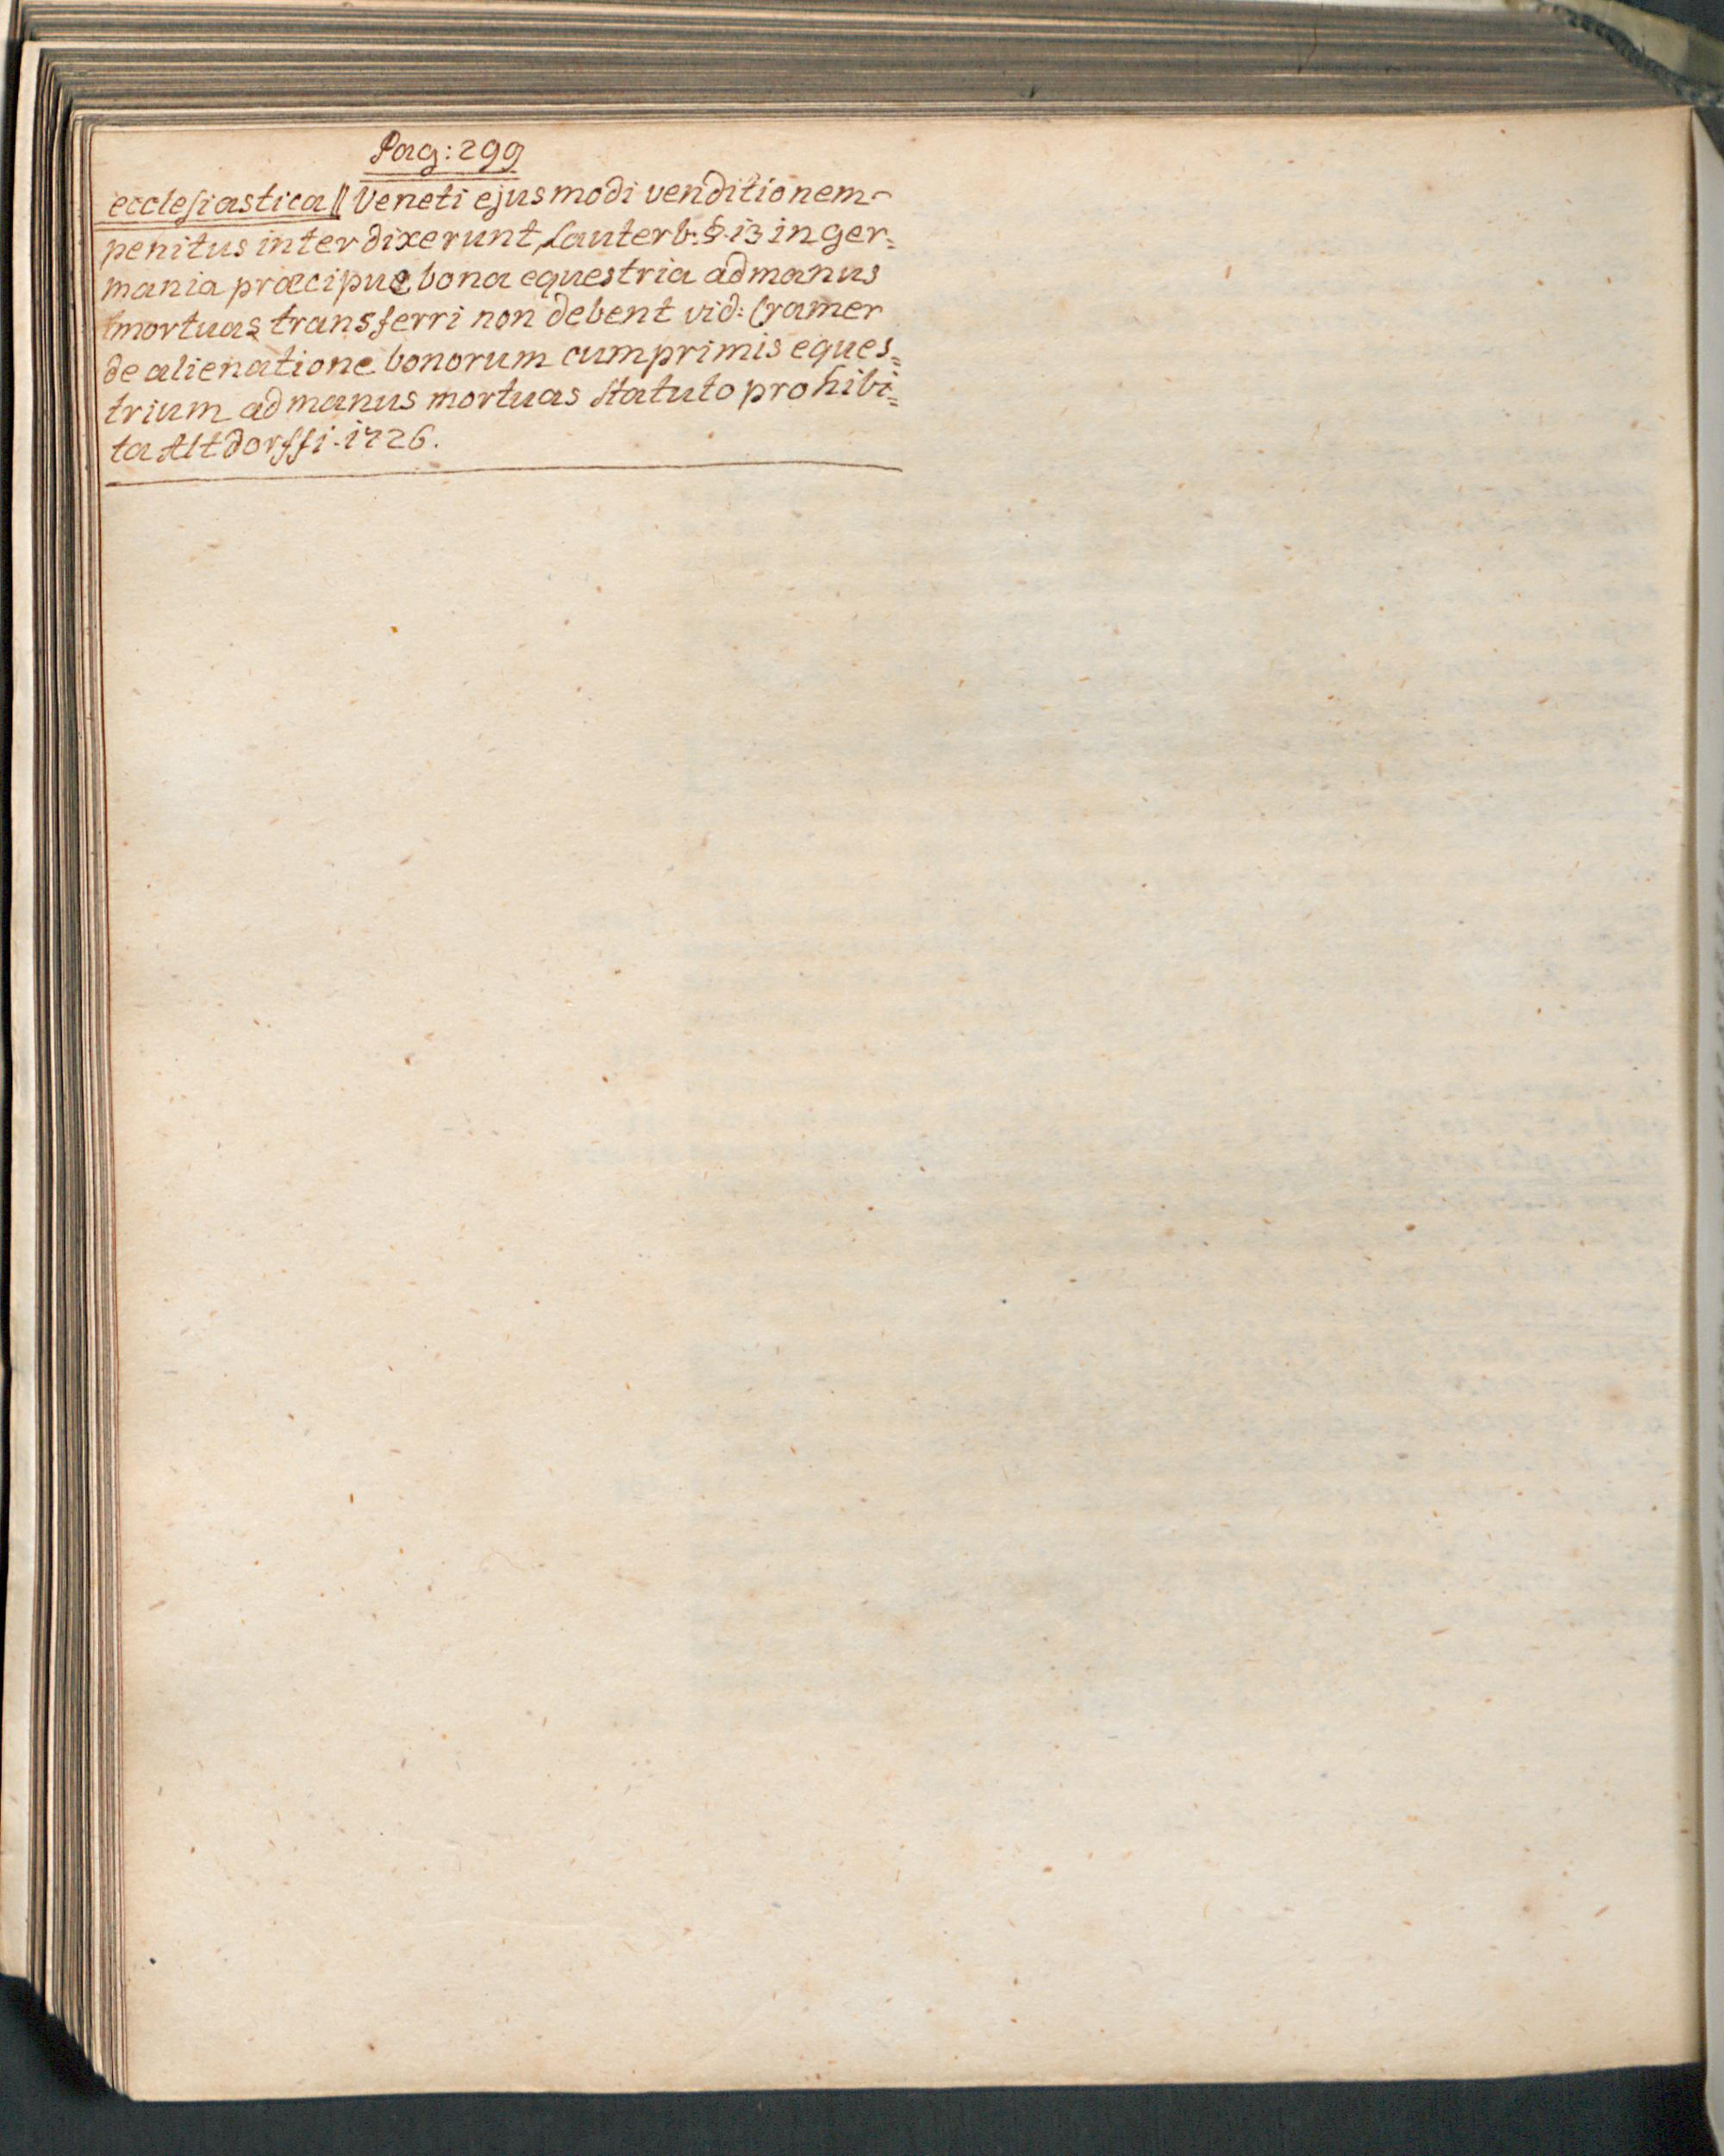 Pag: 299
ecclesiastica || Veneti ejusmodi venditionem
penitus interdixerunt, Lauterb. §. 13 in ger=
mania præcipue bona equestria ad manus
mortuas transferri non debent vid: Cramer
de alienatione bonorum cumprimis eques=
trium ad manus mortuas statuto prohibi=
ta Altdorffi. 1726.